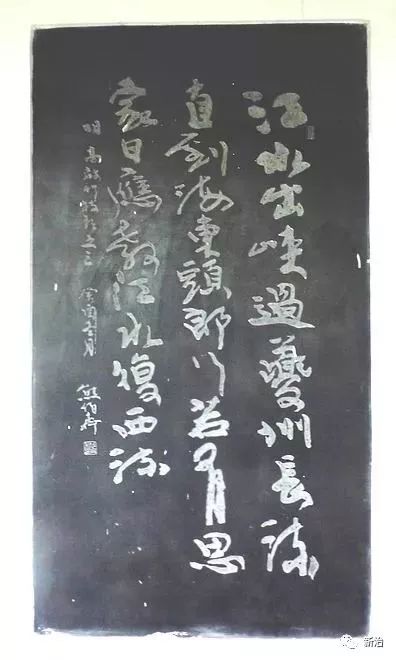 江水出峽過夔州長流
直到海東頭郎行若有思
家日應教江水復西流
明 高啟竹枝歌之三 癸酉 月 熊伯齊
新治